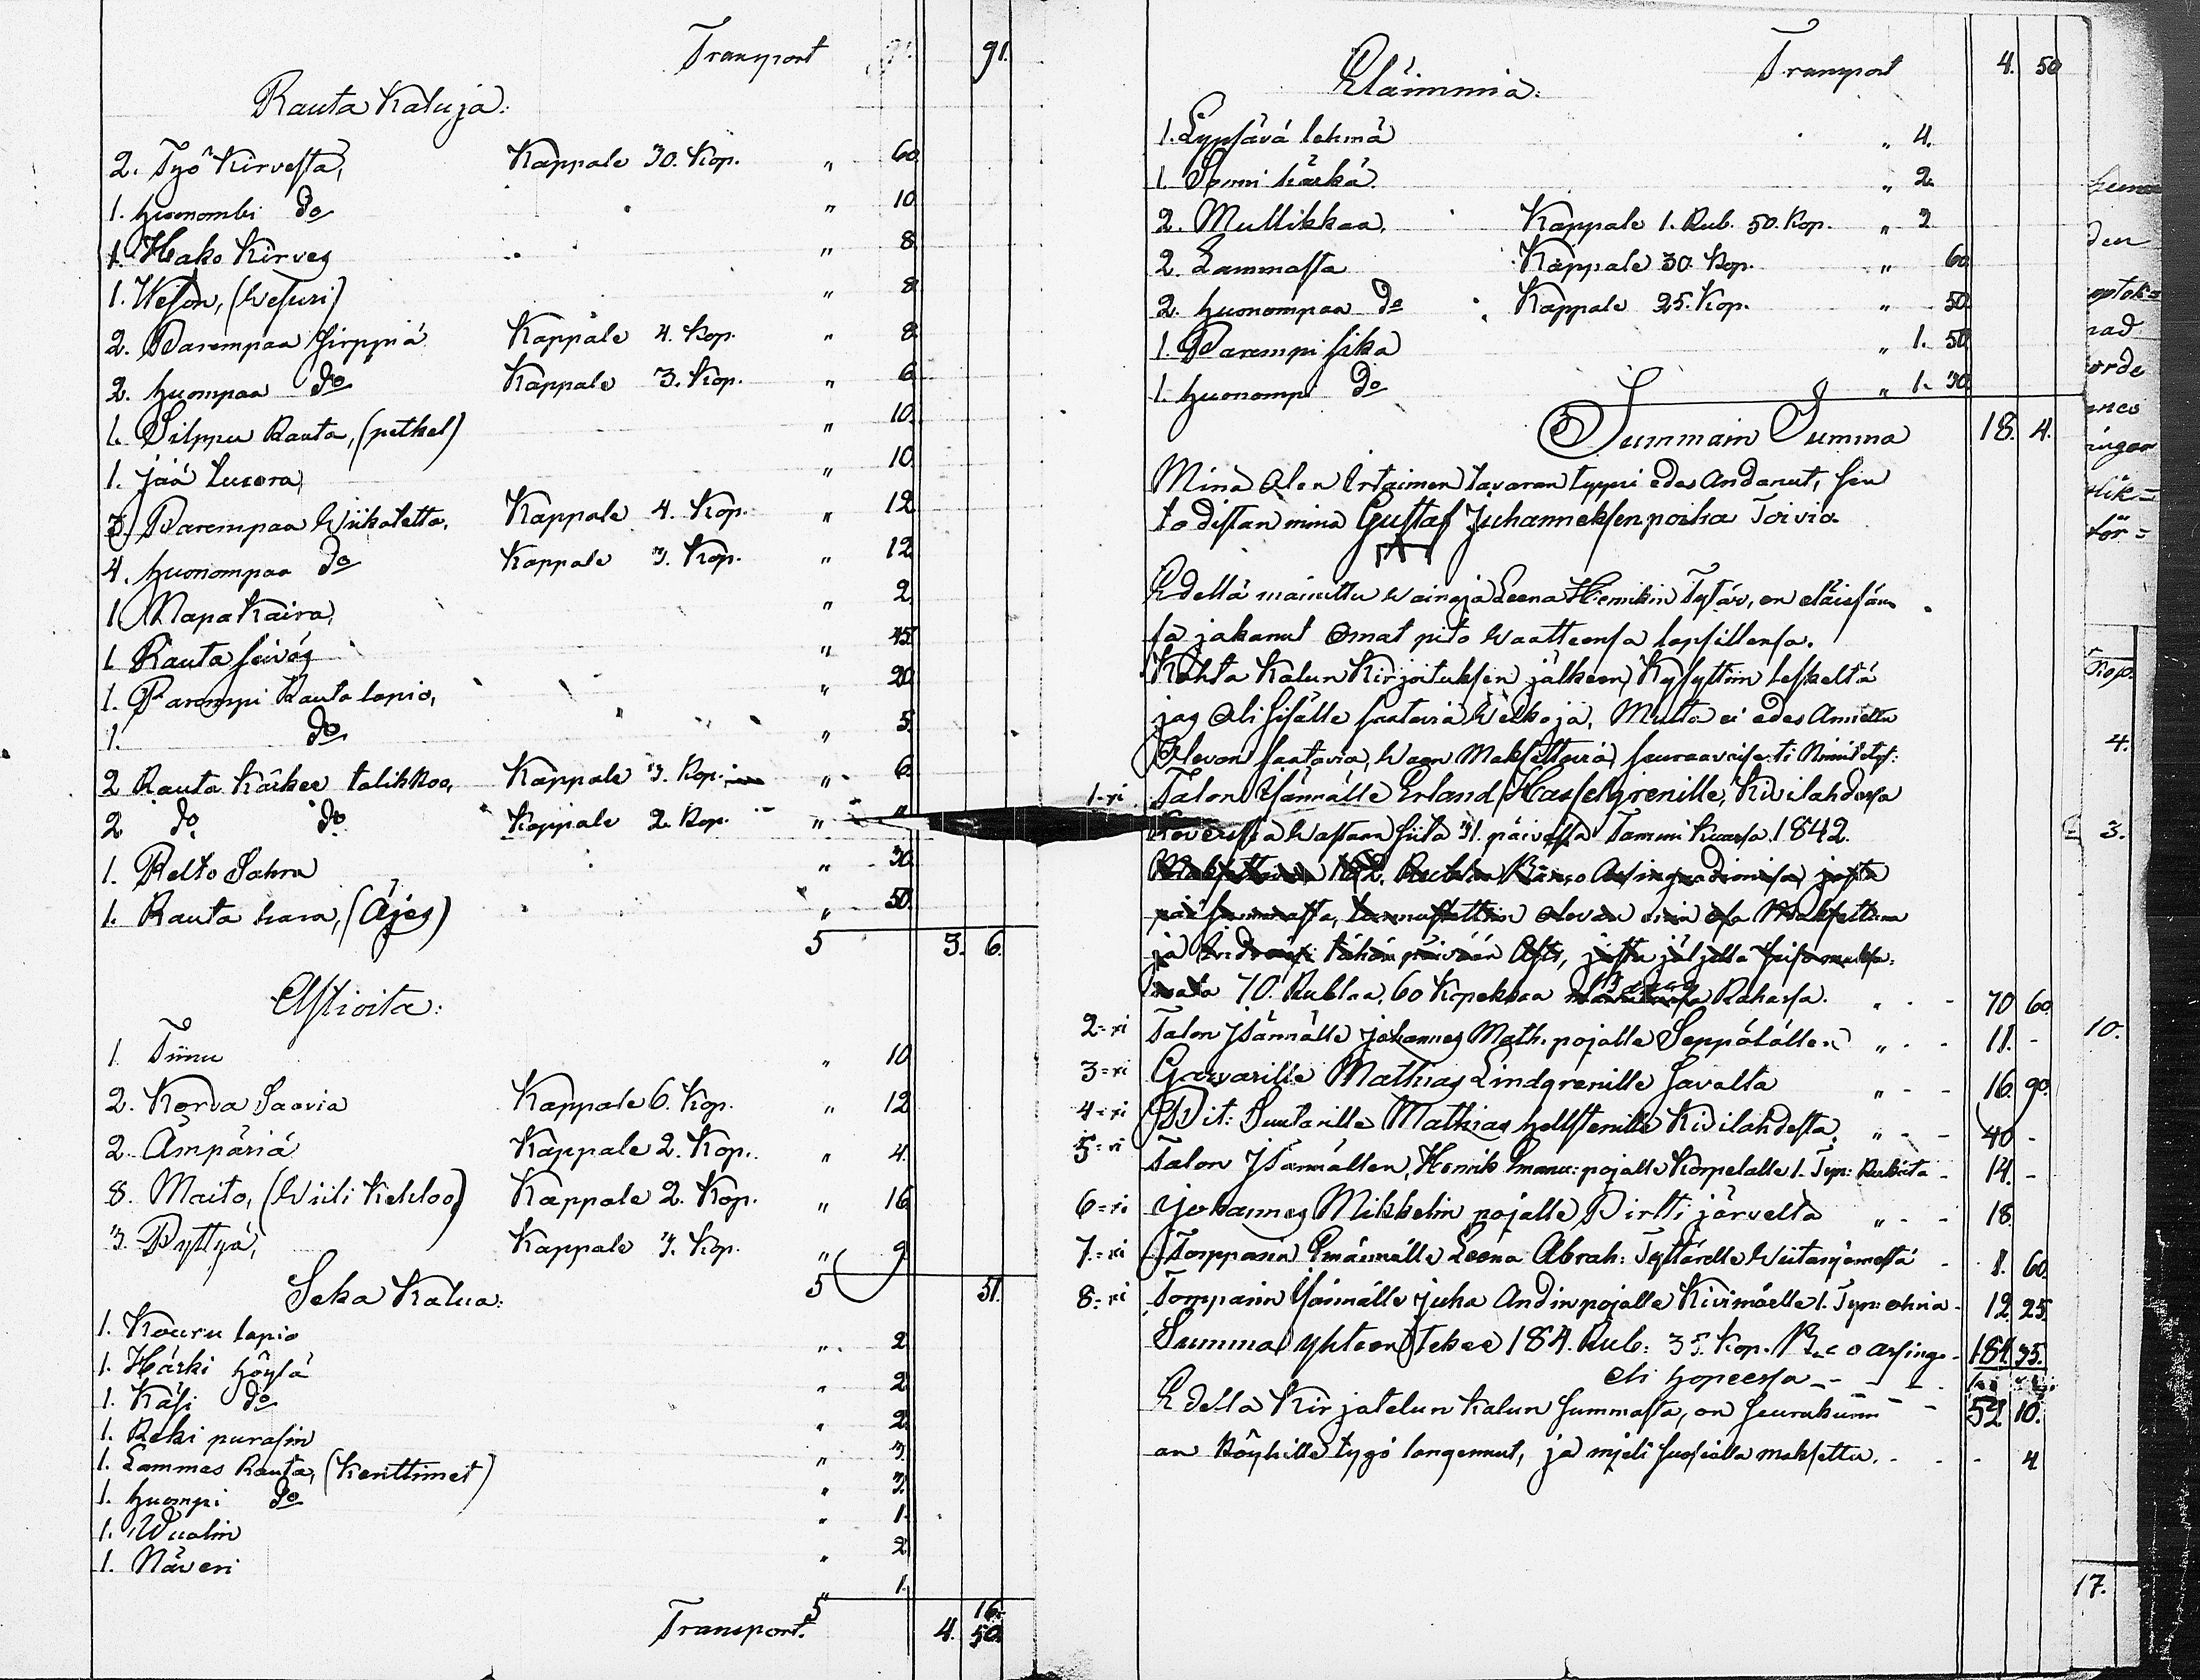 Transport 91.
Rauta Kaluja:
2. Työ Kirvestä, Kappale 30. Kop. " 60
1. huonombi do " 10
1. Hako Kirves " 8
1. Weson, (Wesuri) " 8
2. Parempaa sirppiä Kappale 4. Kop. " 8
2. huompaa do Kappale 3. Kop. " 6
1. Silppu Rauta, (pethel) " 10.
1. jää tuura " 10.
3. Parempaa Wiikatetta, Kappale 4. Kop. " 12
4. huonompaa do Kappale 3. Kop. " 12
1 Napa Kaira, " 2
1 Rauta seiväs " 45.
1. Parempi Rauta lapio, " 20
1. do " 5.
2 Rauta Kärkee talikkoo, Kappale 3. Kop. " 6
2 do do Kappale 2. Kop. "
1. Pelto Sahra " 30
1. Rauta hara, (Äjes) " 50.
S 3. 6.
Astioita:
1. Tiinu " 10
2. Korva Saavia Kappale 6. Kop. " 12
2. Ämpäriä Kappale 2. Kop. " 4.
8. Maito, (Wiili Kehloo) Kappale 2. Kop. " 16
3. Pyttyä, Kappale 3. Kop. " 9
S 51.
Seka Kalua:
1. Kouru lapio " 2
1. Härki höylä " 2
1. Käsi do " 2
1. Reki purasin " 3.
1. Lammas Rauta, (Kerittimet) " 3.
1. huompi do " 1.
1. Wuolin " 2
1. Näveri " 1.
S 16.
Transport. 4. 50.
Transport 4. 50
Eläimmiä:
1. Lypsävä lehmä " 4.
1. Sonni härkä " 2.
2. Mullikkaa, Kappale 1. Rub. 50. Kop. " 2
2. Lammasta Kappale 30. Kop. " 60.
2. huonompaa do Kappale 25. Kop. " 50.
1. Parempi sika " 1. 50.
1. huonompi do " 1. 30.
Summain Summa 18. 4.
Minä Olen Irtaimen tavaran tyyni edes Andanut, sen
todistan minä Gustaf Juhanneksenpoika Toivio.
Edellä mainittu Wainaja Leena Henrikin Tytär, on eläissäns
sä jakanut Omat pito Waatteensa lapsillensa.
Kohta Kalun Kirjoituksen jälkeen, Kysyttiin leskeltä
jos Oli sisälle saatavia Welkoja, Mutta ei edes Annettu
Olevan saatavia, Waan Maksettavia, seuraavaisesti Nimitetyt:
1=xi Talon Isännälle Erland Hasselgrenille, Kivilahdessa
Wastaan siitä 31. päivästä Tammi Kuussa 1842.
70. Rublaa, 60 Kopekkaa Rahassa. " 70 60.
2=xi Talon Isännälle Johannes Math. pojalle Seppälällen " 11. -
3=xi Garvarille Mathias Lindgrenille Savalta " 16. 90.
4=xi Pit: Suutarille Mathias Hellstenille Kivilahdesta, " 40 -
5=xi Talon Isännällen, Henrik Emanu: pojalle Korpelalle 1. Tyn: Rukiita - 14. -
6=xi Johannes Mikkelin pojalle Pirtti järveltä " 18
7=xi Torpparin Emännälle Leena Abrah: Tyttärelle 1. 60.
8=xi Torpparin Isännälle Juha Andinpojalle Kivimäelle 1. Tyn: ohria - 12 25.
Summa yhteen tekee 184. Rub: 35. Kop. B:co assing. 184. 35.
eli hopeessa - - 52 10.
Edellä Kirjatelun Kalun summasta, on seurakunn
an Köyhille tygö langennut, ja mieli suosiolla maksettu. 4
den
rad
orde
ringar
Kop.
4.
3.
10.
17.